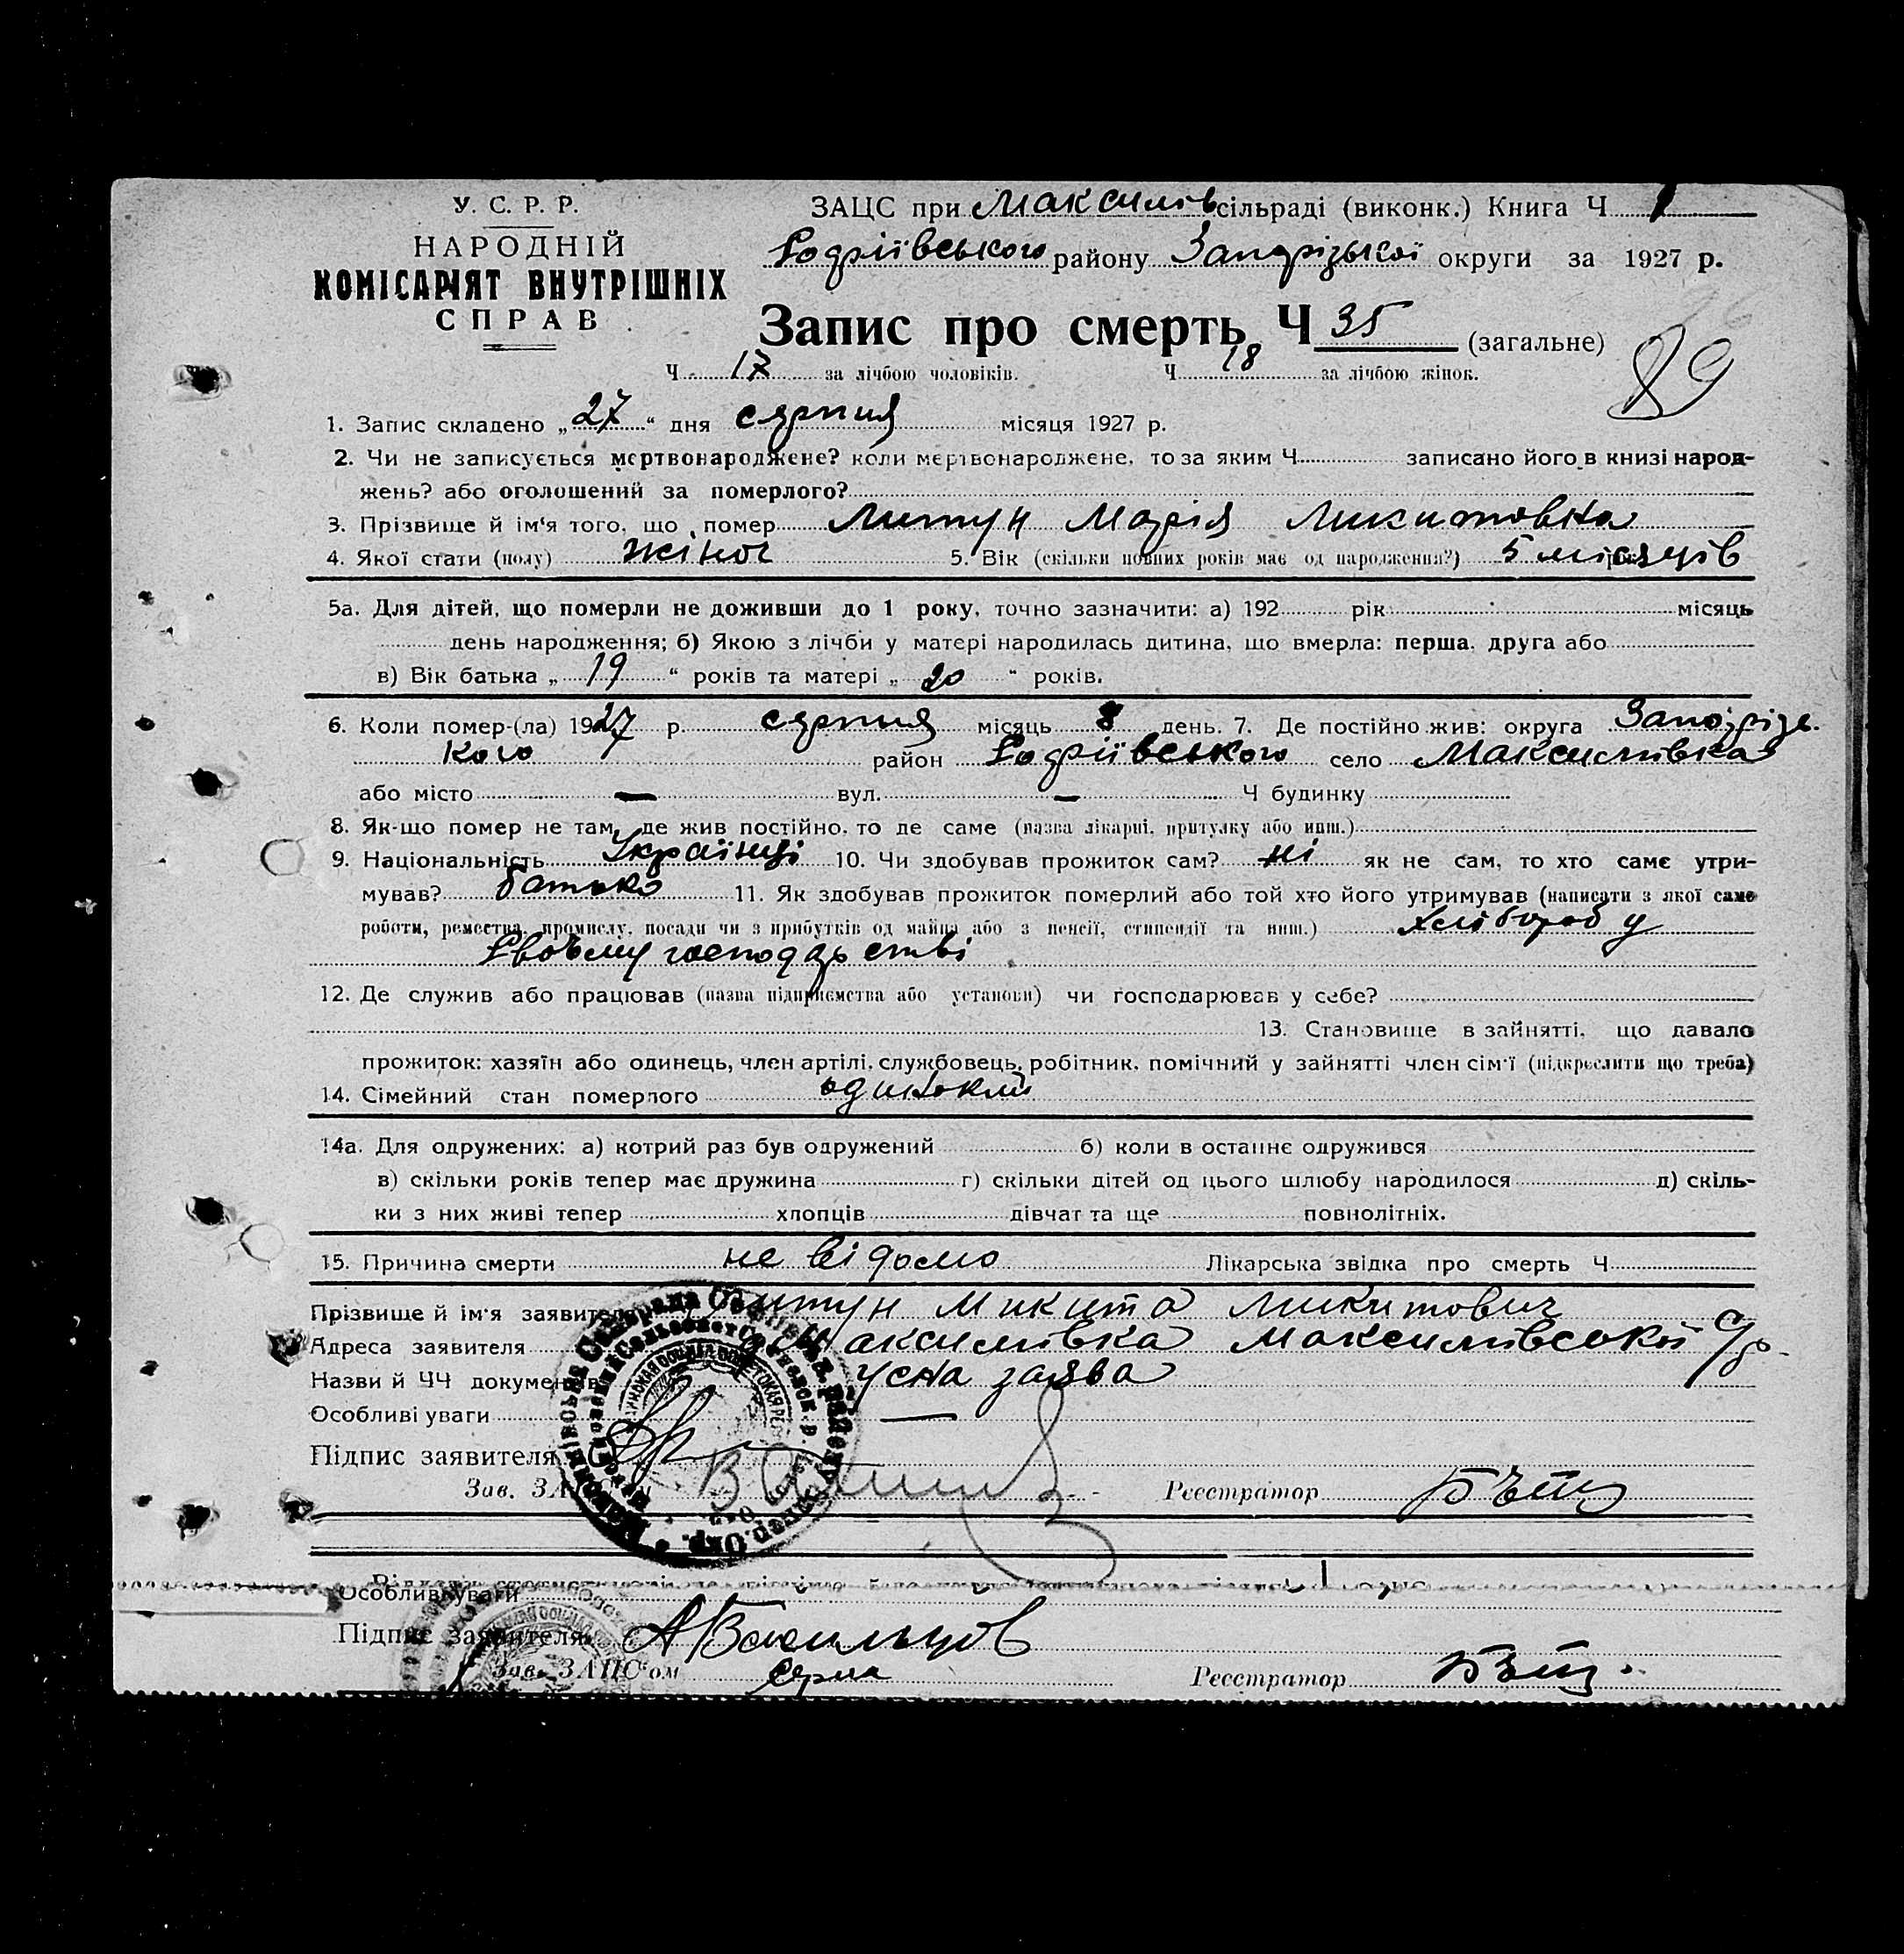 У. С. Р. Р.
НАРОДНІЙ
КОМІСАРІЯТ ВНУТРІШНІХ
СПРАВ
ЗАЦС при Максимів сільраді (виконк.) Книга Ч 1
району Запорізької округи за 1927 р.
Запис про смерть Ч 35 (загальне)
89
Ч 17 за лічбою чоловіків. Ч 18 за лічбою жінок.
1. Запис складено „27“ дня серпня місяця 1927 р.
2. Чи не записується мертвонароджене? коли мертвонароджене, то за яким Ч записано його в книзі народ-
жень? або оголошений за померлого?
3. Прізвище й ім‘я того, що помер Литун Марія Микитовна
4. Якої стати (полу) жіноч 5. Вік (скільки повних років має од народження?) 5 місяців
5а. Для дітей, що померли не доживши до 1 року, точно зазначити: а) 192 рік місяць
день народження; б) Якою з лічби у матері народилась дитина, що вмерла: перша, друга або
в) Вік батька „19“ років та матері „20“ років.
6. Коли помер-(ла) 1927 р. серпня місяць 8 день. 7. Де постійно жив: округа Запорізь
кого район село Максимівка
або місто — вул. — Ч будинку
8. Як-що помер не там, де жив постійно, то де саме (назва лікарні, притулку або инш.)
9. Національність Українці 10. Чи здобував прожиток сам? ні як не сам, то хто саме утри-
мував? батько 11. Як здобував прожиток померлий або той хто його утримував (написати з якої саме
роботи, ремества, промислу, посади чи з прибутків од майна або з пенсії, стипендії та инш.) хлібороб у
своъму господарстві
12. Де служив або працював (назва підприємства або установи) чи господарював у себе?
13. Становище в зайнятті, що давало
прожиток: хазяїн або одинець, член артілі, службовець, робітник, помічний у зайнятті член сім‘ї (підкреслити що треба)
14. Сімейний стан померлого одинокий
14а. Для одружених: а) котрий раз був одружений б) коли в останнє одружився
в) скільки років тепер має дружина г) скільки дітей од цього шлюбу народилося д) скіль-
ки з них живі тепер хлопців дівчат та ще повнолітніх.
15. Причина смерти не відомо Лікарська звідка про смерть Ч
Прізвище й ім‘я заявителя Литун Микита Микитович
Адреса заявителя Максимівка Максимівської с/р.
Назви й ЧЧ документів усна заява
Особливі уваги —
Підпис заявителя
Зав. ЗАЦС‘ом Реєстратор
Особливі уваги
Підпис заявителя А Васильцов
Зав. ЗАЦС‘ом Реєстратор